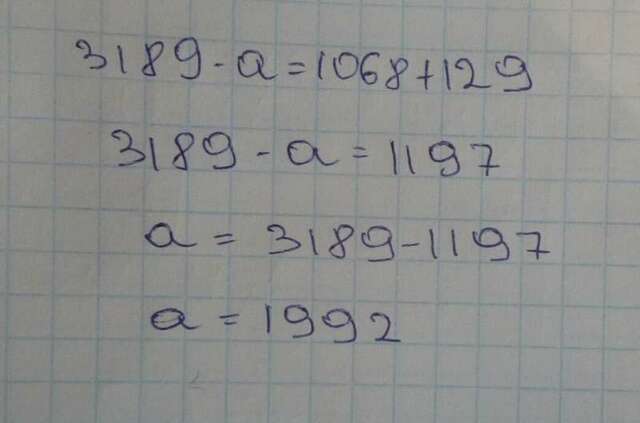 3189 - a = 1068 + 129
3189 - a = 1197
a = 3189 - 1197
a = 1992